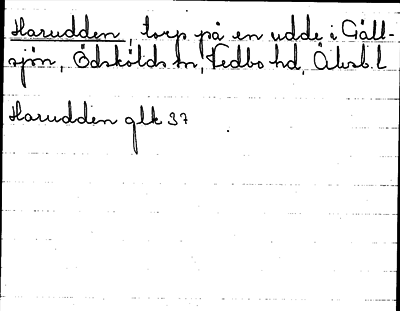 Harudden, torp på en udde i Gåll-
sjön, Ödskölds sn, Vedbo hd, Älvsb. l
Harudden glk 37